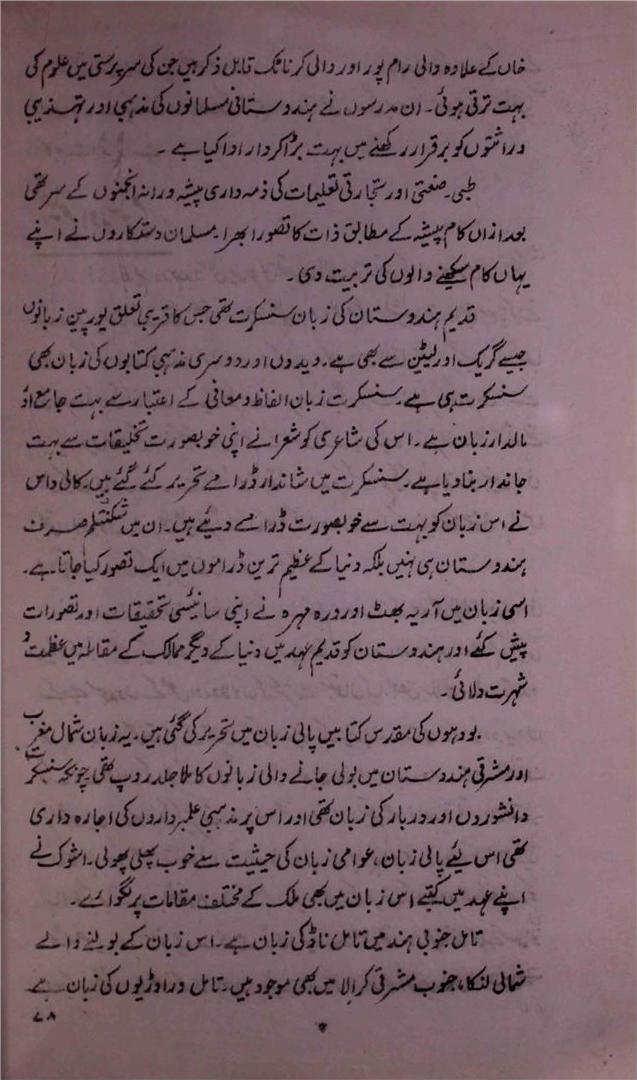 خاں کے علاوہ والی رام پور اور والی کرناٹک قابل ذکر ہیں جن کی سرپرستی میں علوم کی
بہت ترقی ہوئی۔ ان مدرسوں نے ہندوستانی مسلمانوں کی مذہبی اور تہذیبی
وراثتوں کو برقرار رکھنے میں بہت بڑا کردار ادا کیا ہے۔
طبی۔ صنعتی اور تجارتی تعلیمات کی ذمہ داری پیشہ ورانہ انجمنوں کے سر تھی
بعد ازاں کام پیشہ کے مطابق ذات کا تصور ابھرا۔ مسلمان دستکاروں نے اپنے
یہاں کام سیکھنے والوں کی تربیت دی۔
قدیم ہندوستان کی زبان سنسکرت تھی جس کا قریبی تعلق یورپین زبانوں
جیسے گریک اور لیٹن سے بھی ہے۔ ویدوں اور دوسری مذہبی کتابوں کی زبان بھی
سنسکرت ہی ہے۔ سنسکرت زبان الفاظ و معانی کے اعتبار سے بہت جامع اور
مالدار زبان ہے۔ اس کی شاعری کو شعرا نے اپنی خوبصورت تخلیقات سے بہت
جاندار بنا دیا ہے۔ سنسکرت میں شاندار ڈرامے تحریر کئے گئے ہیں۔ کالی داس
نے اس زبان کو بہت سے خوبصورت ڈرامے دیئے ہیں۔ ان میں شکنتلم صرف
ہندوستان ہی نہیں بلکہ دنیا کے عظیم ترین ڈراموں میں ایک تصور کیا جاتا ہے۔
اسی زبان میں آریہ بھٹ اور ورہ مہرہ نے اپنی سائنسی تحقیقات اور تصورات
پیش کئے اور ہندوستان کو قدیم عہد میں دنیا کے دیگر ممالک کے مقابلہ میں عظمت و
شہرت دلائی۔
بودہوں کی مقدس کتابیں پالی زبان میں تحریر کی گئی ہیں۔ یہ زبان شمال مغرب
اور مشرقی ہندوستان میں بولی جانے والی زبانوں کا ملا جلد روپ تھی چونکہ سنسکرت
دانشوروں اور دربار کی زبان تھی اور اس پر مذہبی علمبرداروں کی اجارہ داری
تھی اس لیئے پالی زبان، عوامی زبان کی حیثیت سے خوب پھلی پھولی۔ اشوک نے
اپنے عہد میں کتبے اس زبان میں بھی ملک کے مختلف مقامات پر لگوائے۔
تامل جنوبی ہند میں تامل ناڈ کی زبان ہے۔ اس زبان کے بولنے والے
شمالی لنکا، جنوب مشرقی کرالا میں بھی موجود ہیں۔ تامل دراوڑیوں کی زبان ہے
۷۸